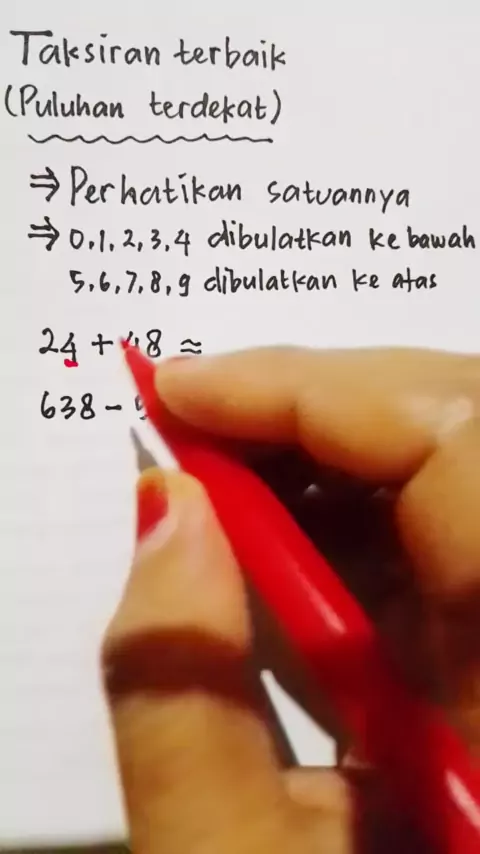 Taksiran terbaik
(Puluhan terdekat)
⇒ Perhatikan satuannya
⇒ 0,1,2,3,4 dibulatkan ke bawah
5,6,7,8,9 dibulatkan ke atas
24 + 48 ≈
638 -